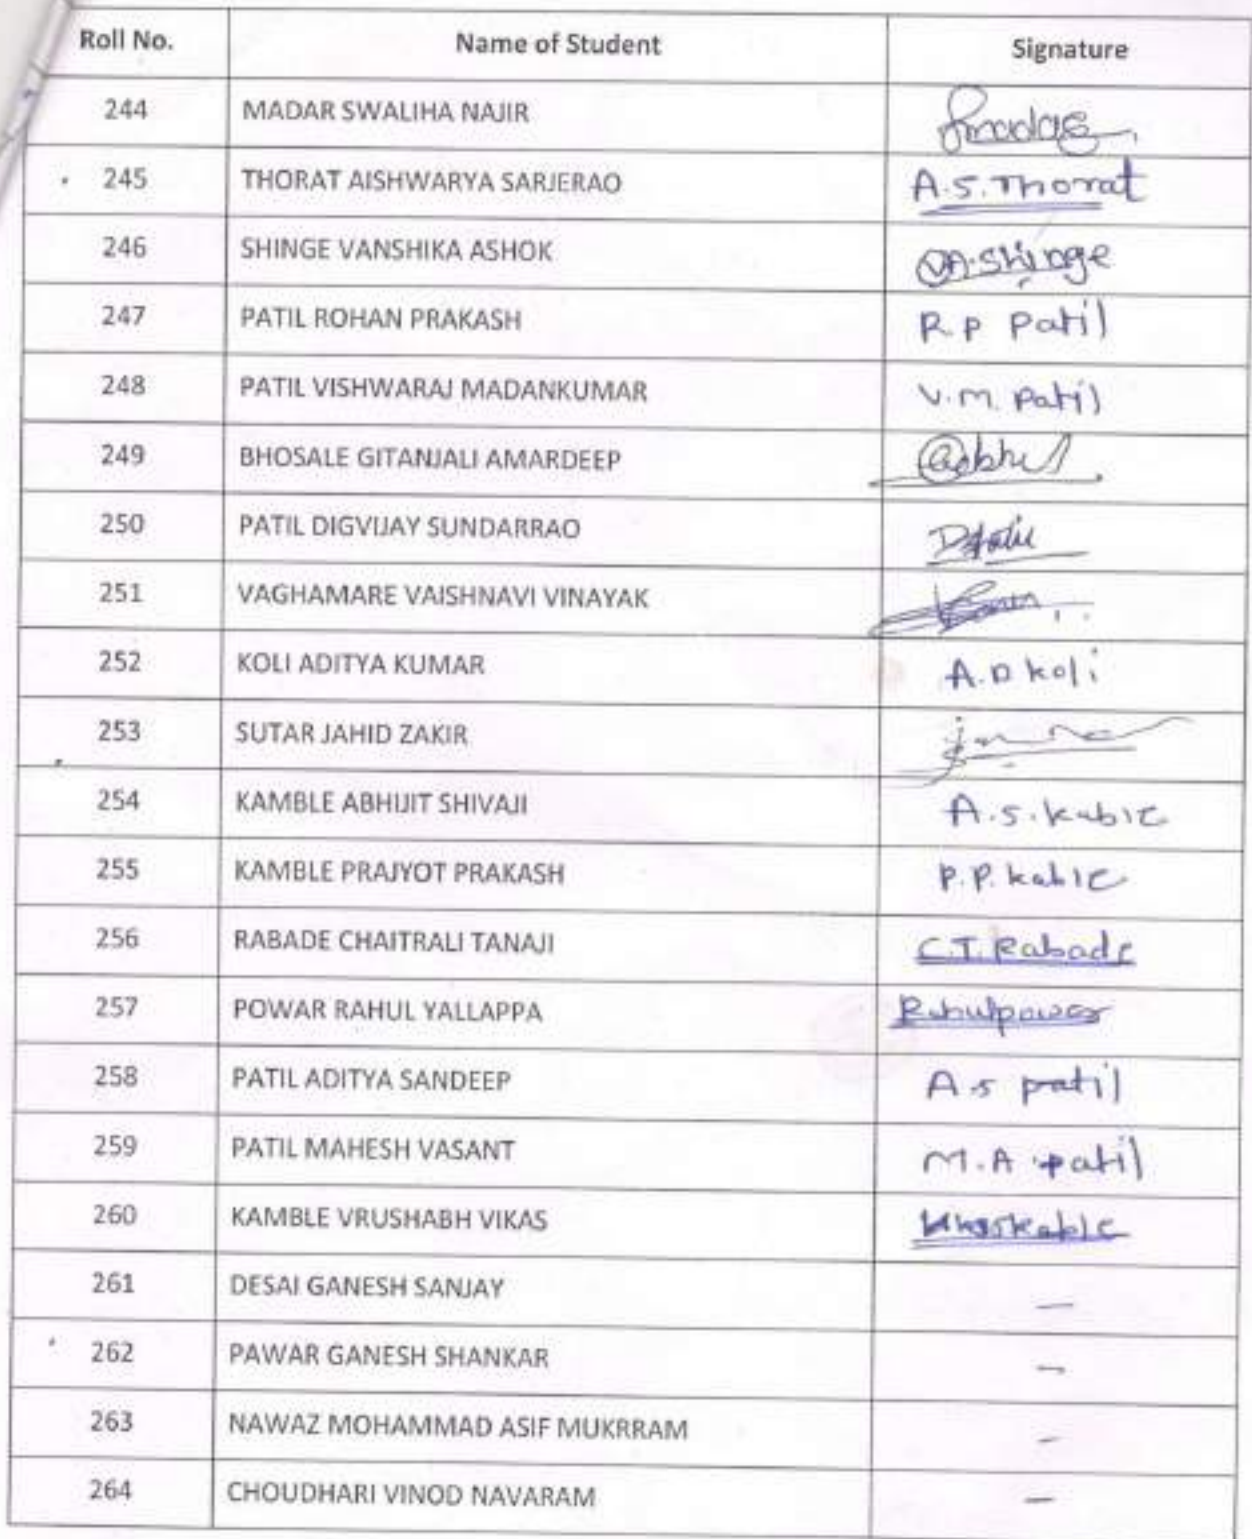 Roll No. Name of Student Signature
244 MADAR SWALIHA NAJIR
245 THORAT AISHWARYA SARJERAO A.S.Thorat
246 SHINGE VANSHIKA ASHOK VA.Shinge
247 PATIL ROHAN PRAKASH R.P Patil
248 PATIL VISHWARAJ MADANKUMAR V.M. Patil
249 BHOSALE GITANJALI AMARDEEP
250 PATIL DIGVIJAY SUNDARRAO
251 VAGHAMARE VAISHNAVI VINAYAK
252 KOLI ADITYA KUMAR A.D koli
253 SUTAR JAHID ZAKIR
254 KAMBLE ABHIJIT SHIVAJI A.S.kable
255 KAMBLE PRAJYOT PRAKASH P.P. kable
256 RABADE CHAITRALI TANAJI C.T.Rabade
257 POWAR RAHUL YALLAPPA Rahulpowar
258 PATIL ADITYA SANDEEP A.s patil
259 PATIL MAHESH VASANT M.A patil
260 KAMBLE VRUSHABH VIKAS
261 DESAI GANESH SANJAY –
262 PAWAR GANESH SHANKAR –
263 NAWAZ MOHAMMAD ASIF MUKRRAM –
264 CHOUDHARI VINOD NAVARAM –